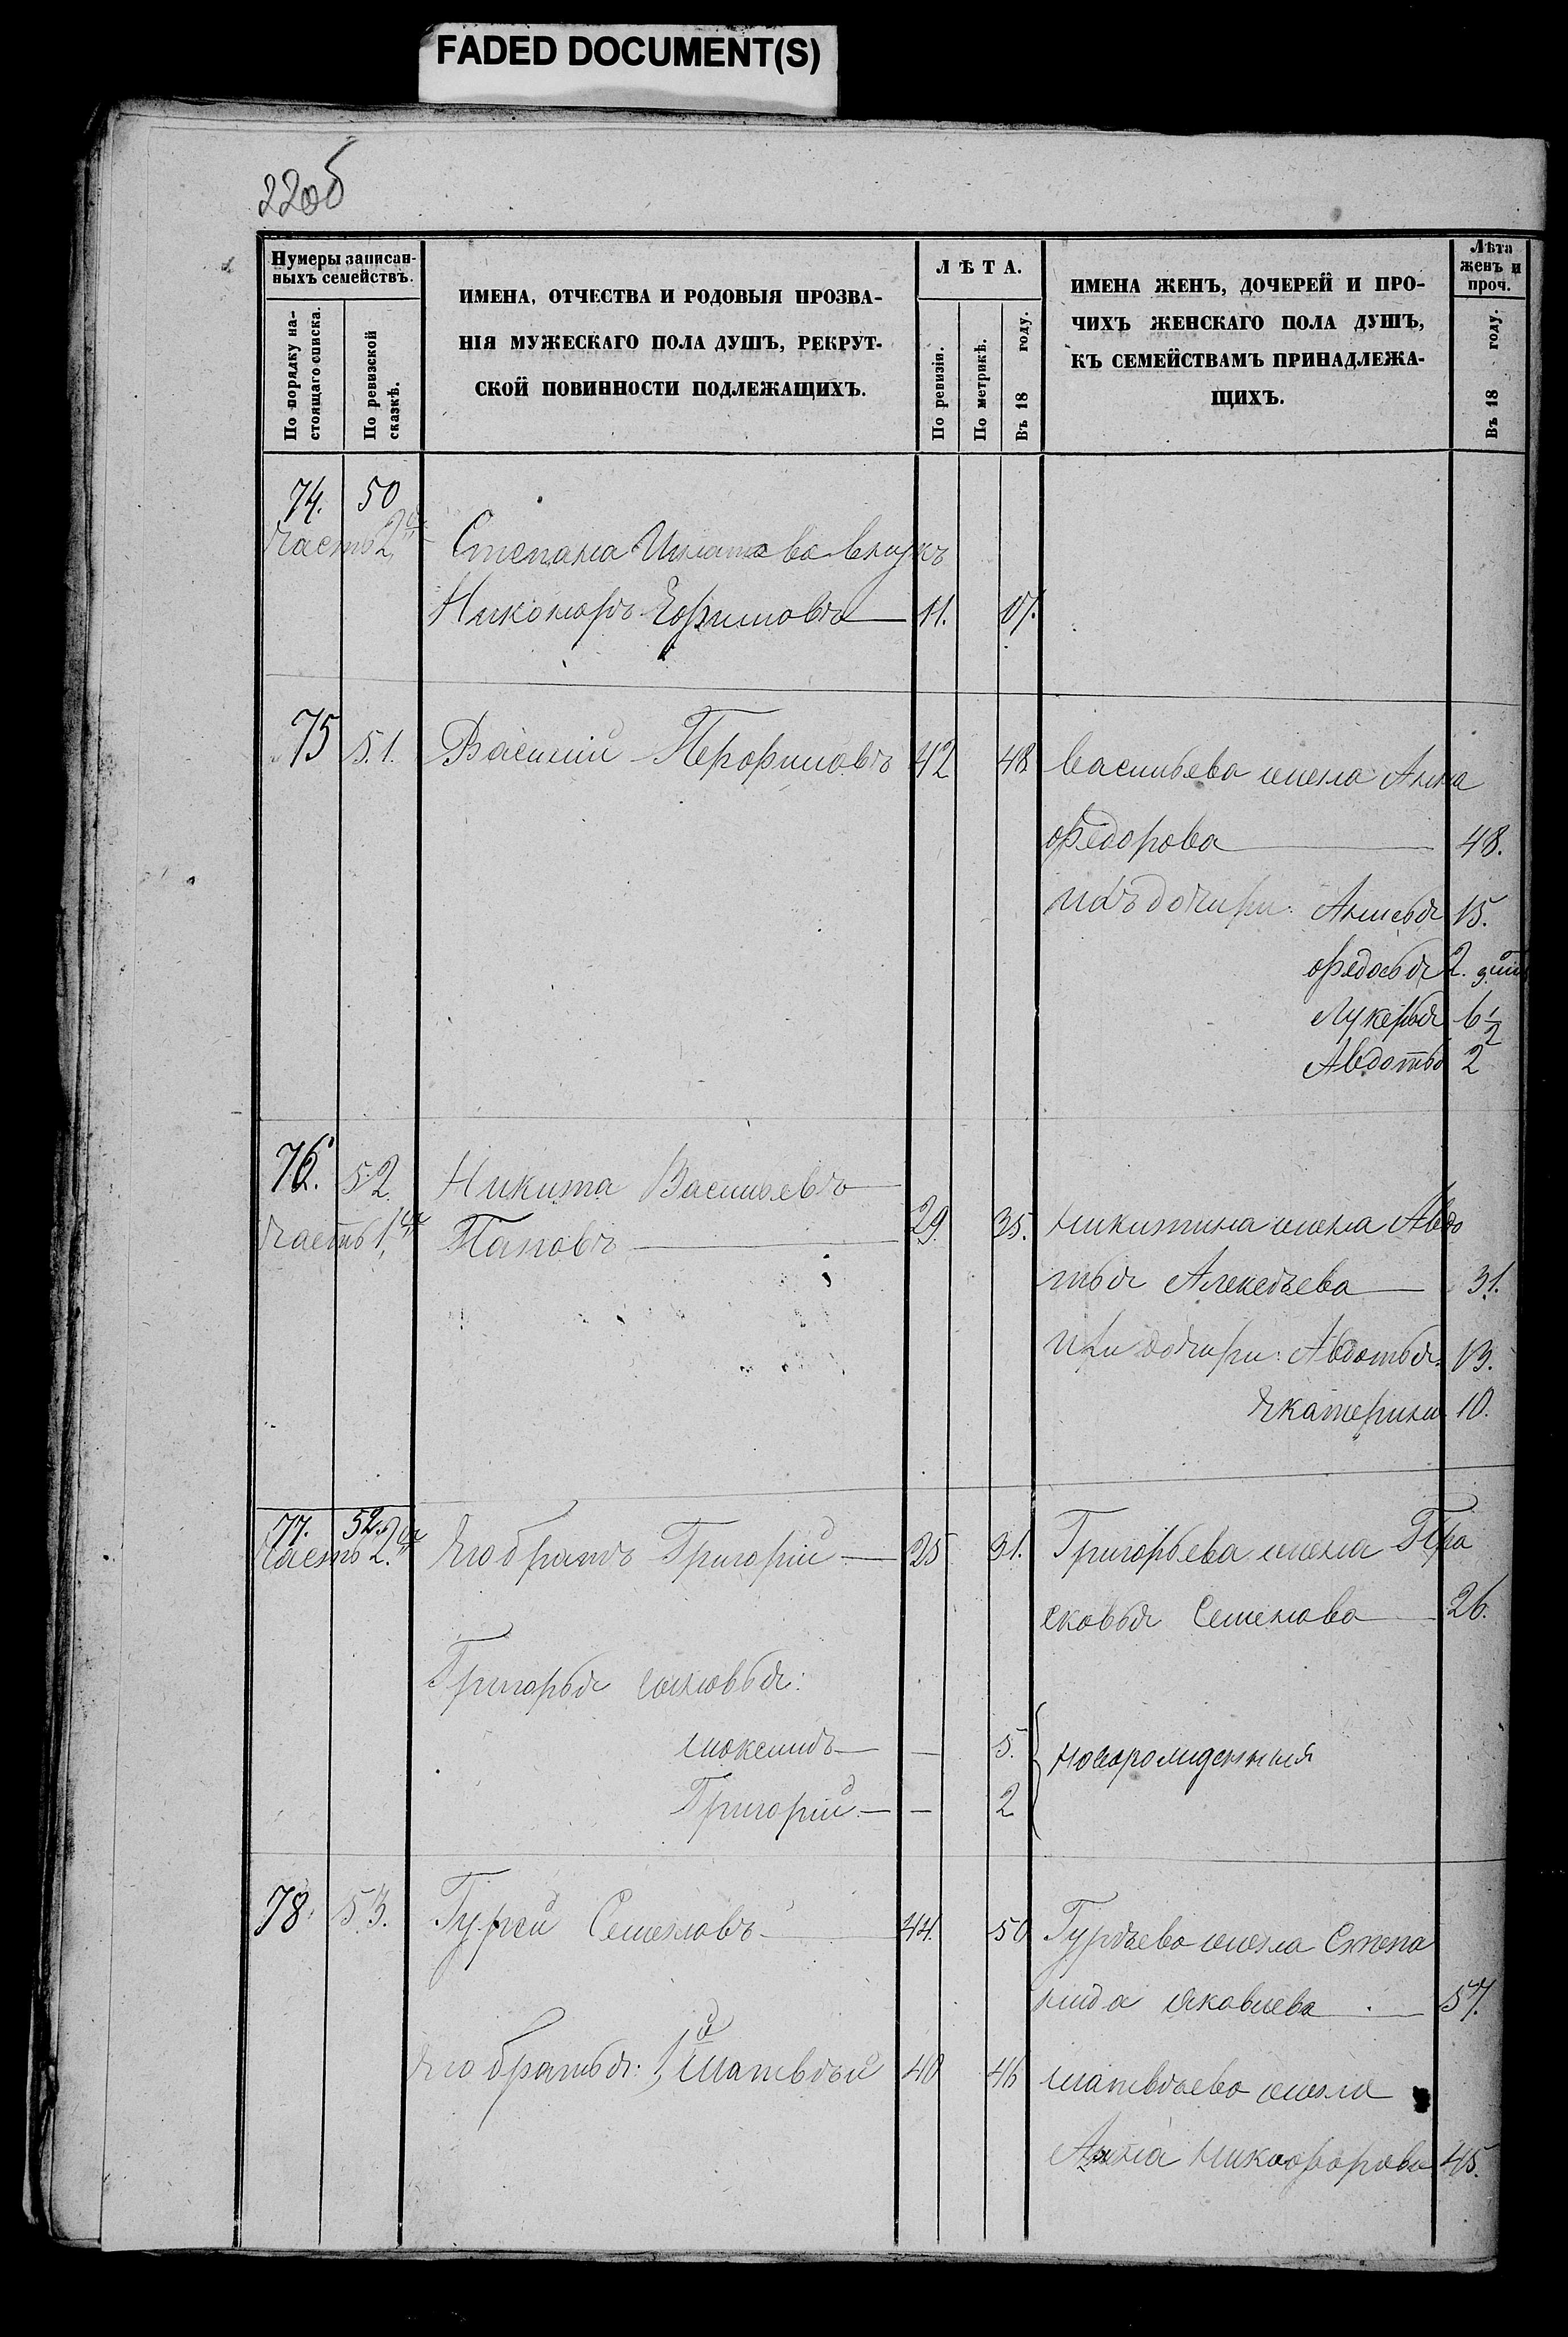 FADED DOCUMENT(S)
220б
Нумеры записан-
ныхъ семействъ.
По порядку на-
стоящаго списка.
По ревизской
сказкѣ.
ИМЕНА, ОТЧЕСТВА И РОДОВЫЯ ПРОЗВА-
НІЯ МУЖЕСКАГО ПОЛА ДУШЪ, РЕКРУТ-
СКОЙ ПОВИННОСТИ ПОДЛЕЖАЩИХЪ.
ЛѢТА.
По ревизіи.
По метрикѣ.
Въ 18 году.
ИМЕНА ЖЕНЪ, ДОЧЕРЕЙ И ПРО-
ЧИХЪ ЖЕНСКАГО ПОЛА ДУШЪ,
КЪ СЕМЕЙСТВАМЪ ПРИНАДЛЕЖА-
ЩИХЪ.
Лѣта
женъ и
проч.
Въ 18 году.
74. 50
часть 2я Степана Игнатова внукъ
Никоноръ Ефимовъ 11. 17.
75 51. Василий Перофиловъ 42 48 Васильева жена Анна
Федорова 48.
ихъ дочери: Анисья 15.
Федосья 2.
Лукерья 6 1/2
Авдотья 2
76. 52. Никита Васильевъ
часть 1я Паповъ 29. 35. Никитина жена Авдо
тья Алексѣева 31.
ихъ дочери: Авдотья 13.
Екатерина 10.
77. 52.
часть 2я Его братъ Григорій 25 31. Григорьева жена Пра
сковья Семенова 26.
Григорья сыновья:
Максимъ — 5. новорожденныя
Григорій — — 2
78. 53. Гурей Семеновъ 44. 50 Гурѣева жена Степа
нида Яковлева 57.
Его братья: 1й Матвѣй 40 46 Матвѣева жена
Анна Никифорова 45.